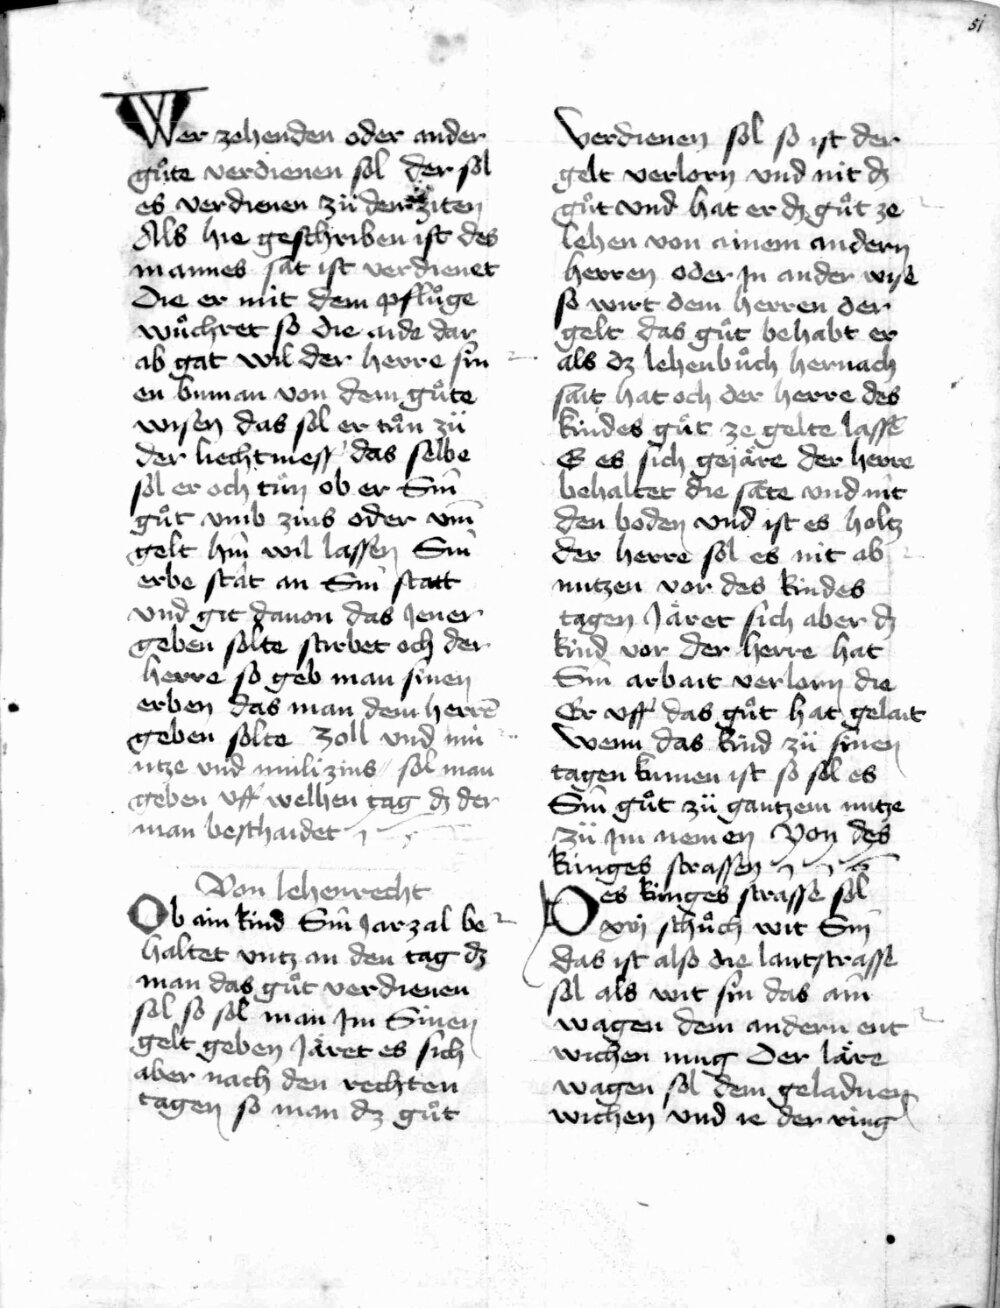 51
Wer zehenden oder ander
gůte verdienen sol der sol
es verdienen zü den ziten
Als hie geschriben ist des
mannes sat ist verdienet
Die er mit dem pflůge
wůchret so die aide dar
ab gat wil der herre sin
en buman von dem gůte
wisen das sol er tůn zü
der liechtmess das selbe
sol er och tůn ob er Sin
gůt vmb zins oder vm̄
gelt hin wil lassen Sin
erbe stât an Sin statt
vnd git dauon das Jener
geben solte stirbet och der
herre so geb man sinen
erben das man dem herrē
geben solte Zoll vnd mü
ntze vnd mülizins sol man
geben vff welhen tag dz der
man beschaidet
Von lehenrecht
Ob ain kind Sin Jarzal be
haltet vntz an den tag dz
man das gůt verdienen
sol so sol man Jm Sinen
gelt geben Järet es sich
aber nach den rechten
tagen so man dz gůt
verdienen sol so ist der
gelt verlorn vnd nit dz
gůt vnd hat er dz gůt ze
lehen von ainem andern
herren oder Jn ander wise
so wirt dem herren der
gelt das gůt behabt er
als dz lehenbůch hernach
sait hat och der herre des
kindes gůt ze gelte lassē
E es sich gejäre der herre
behaltet die sâte vnd nit
den boden vnd ist es holtz
der herre sol es nit ab
nutzen vor des kindes
tagen Järet sich aber dz
kind vor der herre hat
Sin arbait verlorn die
Er vff das gůt hat gelait
Wenn das kind zü sinen
tagen kumen ist so sol es
Sin gůt zü gantzem nutze
zü Jm nemen Von des
künges strassen
Des künges strasse sol
xvj schůch wit Sin
das ist also die lantstrasse
sol als wit sin das ain
wagen dem andern ent
wichen mug Der läre
wagen sol dem geladnen
wichen vnd ie der ring